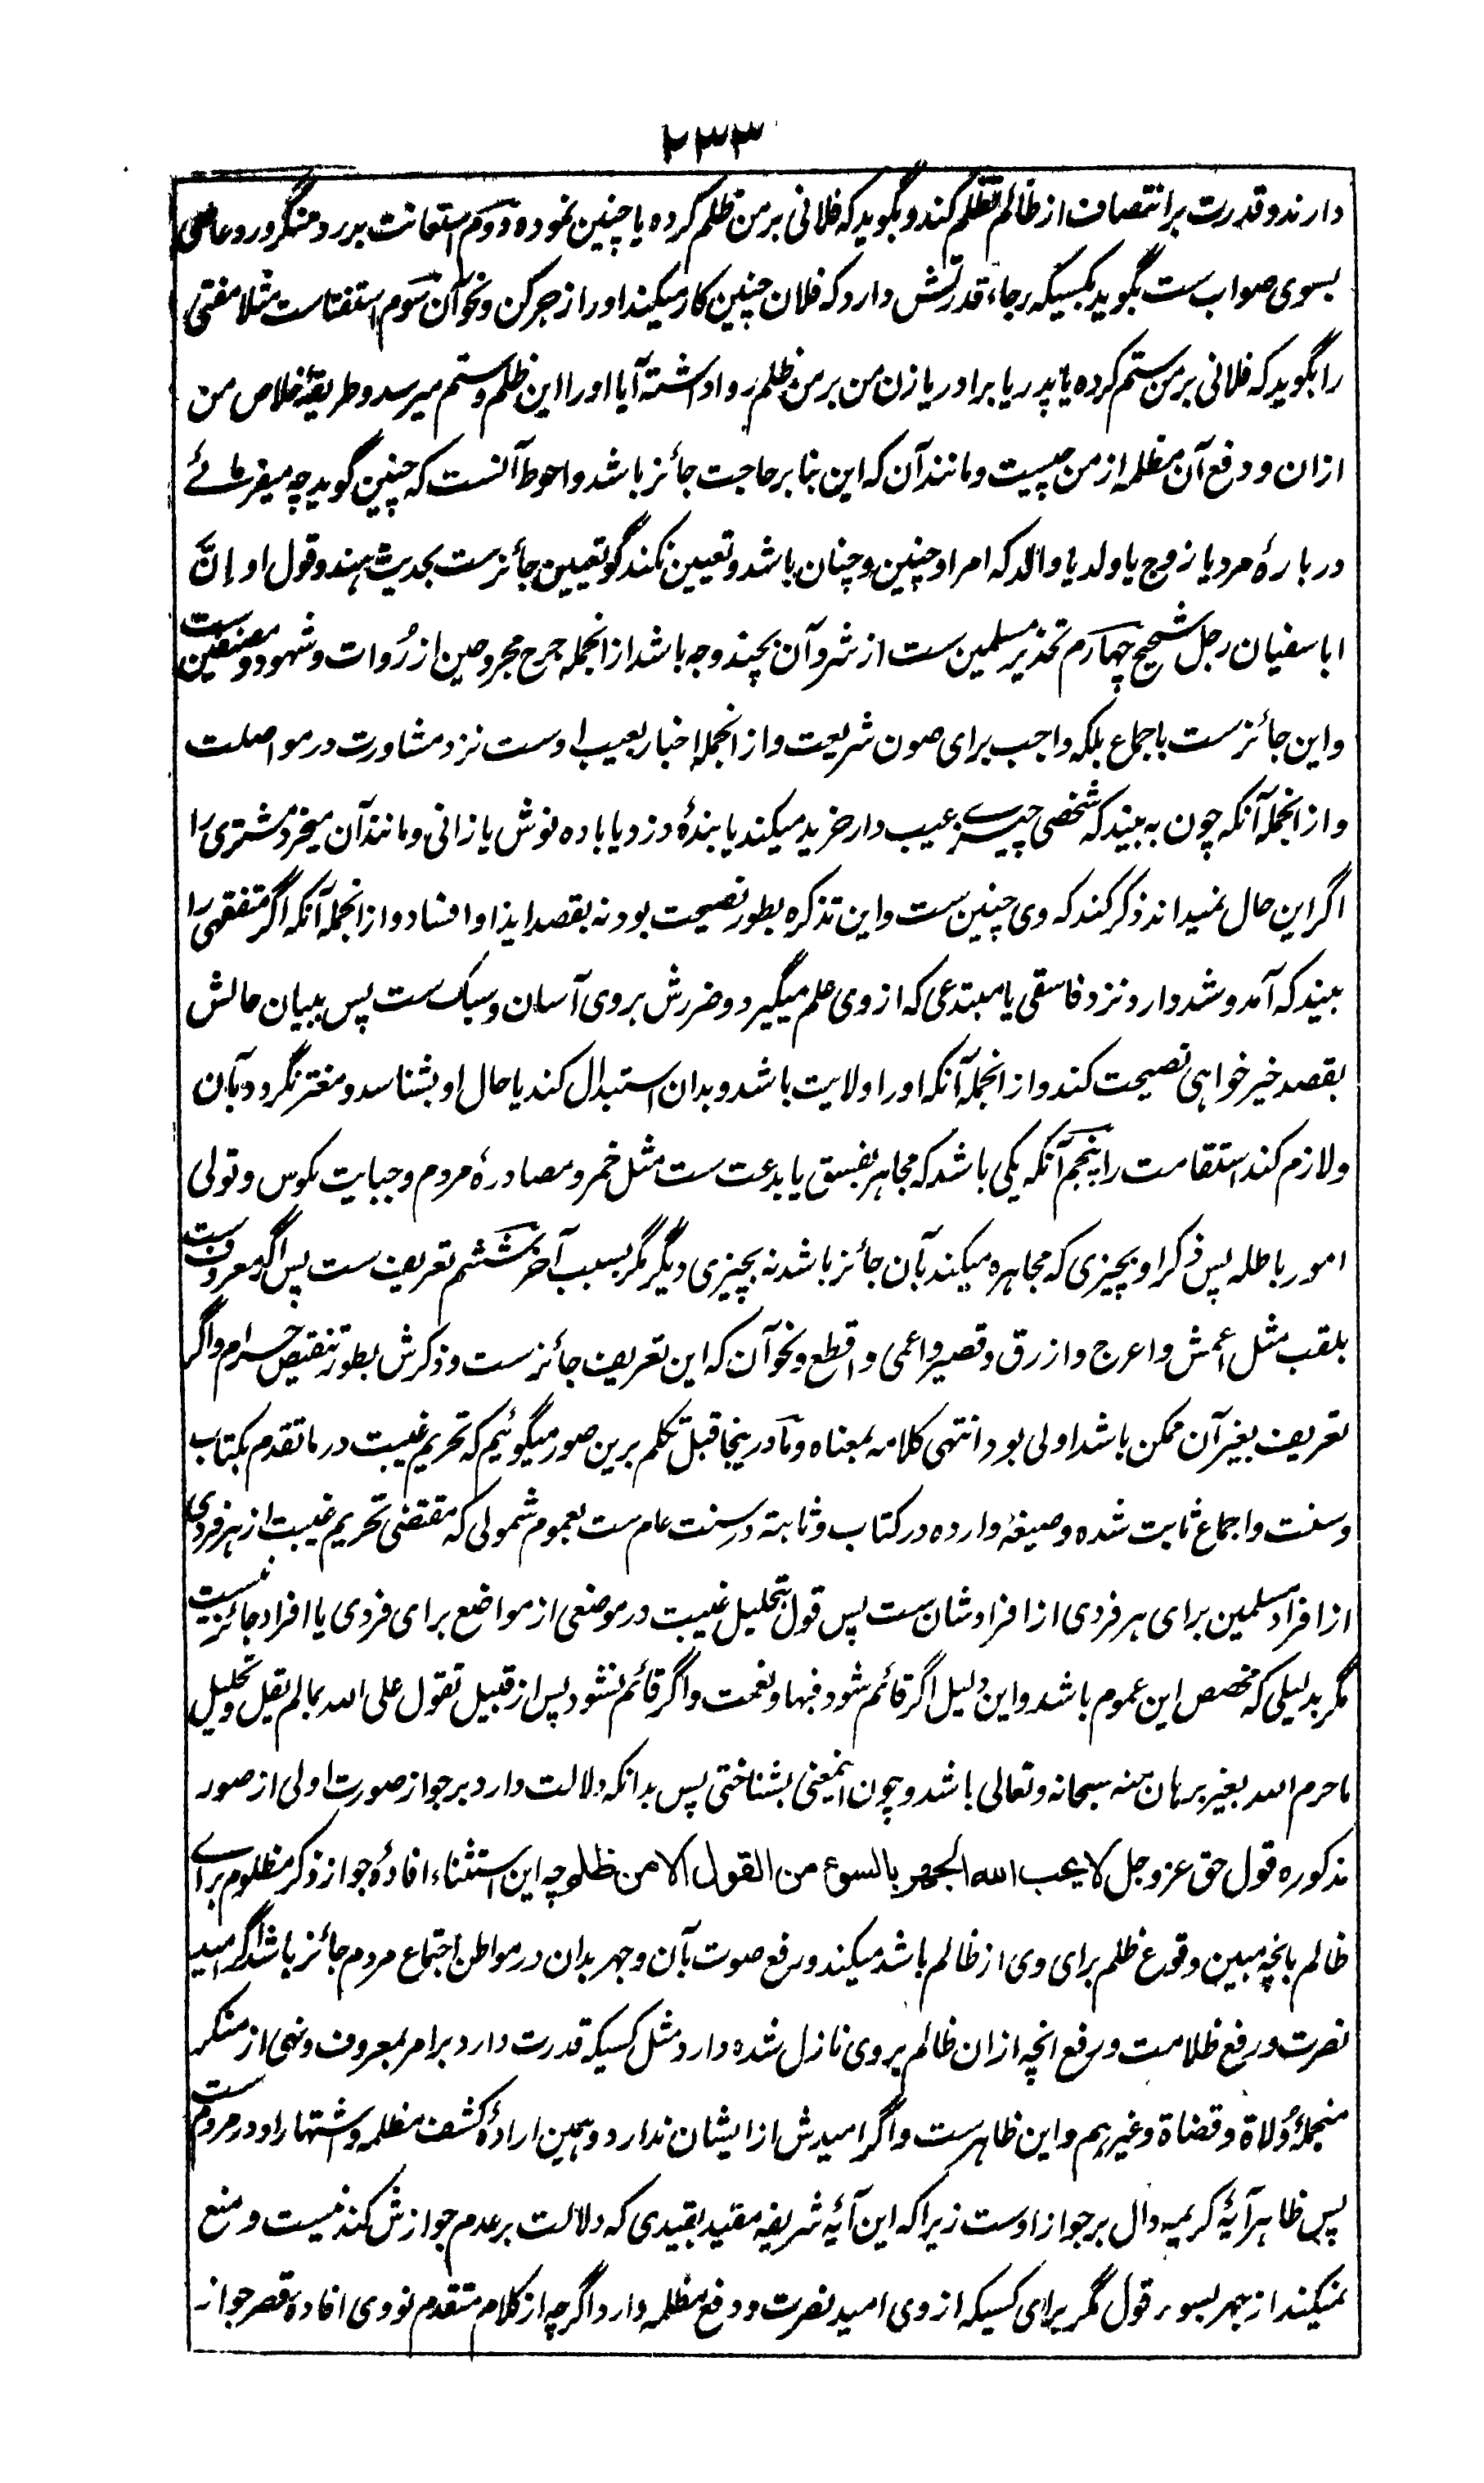 ۲۳۳
دارند و قدرت بر انتصاف از ظالم تظلم کند و بگوید که فلانی بر من ظلم کرده یا چنین نموده دوم استعانت بر رد منکر و رد عاصی
بسوی صواب ست بگوید بکسیکه رجاء قدرتش دارد که فلان چنین کار میکند او را زجر کن و نحو آن سوم استفتاست مثلا مفتی
را بگوید که فلانی بر من ستم کرده یا پدر یا برادر یا زن من بر من ظلم روا داشته آیا او را این ظلم و ستم میرسد و طریقهٔ خلاص من
ازان و دفع آن مظلمه از من چیست و مانند آن که این بنابر حاجت جائز باشد و احوط آنست که چنین گوید چه میفرمائے
دربارهٔ مرد یا زوج یا ولد یا والد که امر او چنین و چنان باشد و تعیین نکند گو تعیین جائزست بحدیث هند و قول او إنَّ
ابا سفیان رجل شحیح چهارم تحذیر مسلمین ست از شر و آن بچند وجه باشد ازانجمله جرح مجروحین از رُوات و شهود و مصنفین ست
و این جائزست باجماع بلکه واجب برای صون شریعت و ازانجمله اخبار بعیب اوست نزد مشاورت در مواصلت
و ازانجمله آنکه چون به بیند که شخصی چیزے عیب دار خرید میکند یا بندهٔ دزد یا باده نوش یا زانی و مانند آن میخرد مشتری را
اگر این حال نمیداند ذکر کند که وی چنین ست و این تذکره بطور نصیحت بود نه بقصد ایذا و افساد و ازانجمله آنکه اگر متفقهی را
بیند که آمد و شد دارد نزد فاسقی یا مبتدعی که از وی علم میگیرد و ضررش بروی آسان و سبک ست پس ببیان حالش
بقصد خیر خواهی نصیحت کند و ازانجمله آنکه او را ولایت باشد و بدان استبدال کند یا حال او بشناسد و مغتر نگردد بآن
و لازم کند استقامت را پنجم آنکه یکی باشد که مجاهر بفسق یا بدعت ست مثل خمر و مصادرهٔ مردم و جبایت مکوس و تولی
امور باطله پس ذکر او بچیزی که مجاهره میکند بآن جائز باشد نه بچیزی دیگر مگر بسبب آخر ششم تعریف ست پس اگر معروف ست
بلقب مثل اعمش و اعرج و ازرق و قصیر و اعمی و اقطع و نحو آن که این تعریف جائزست و ذکرش بطور تنقیص حرام و اگر
تعریف بغیر آن ممکن باشد اولی بود انتهی کلامه بمعناه و ما درینجا قبل تکلم برین صور میگوئیم که تحریم غیبت در ما تقدم بکتاب
و سنت و اجماع ثابت شده و صیغهٔ وارده در کتاب و ثابته در سنت عام ست بعموم شمولی که مقتضی تحریم غیبت از هر فردی
از افراد مسلمین برای هر فردی از افراد شان ست پس قول بتحلیل غیبت در موضعی از مواضع برای فردی یا افراد جائز نیست
مگر بدلیلی که مخصص این عموم باشد و این دلیل اگر قائم شود فبها و نعمت و اگر قائم نشود پس از قبیل تقول علی الله بما لم یقل و تحلیل
ما حرم الله بغیر برهان منه سبحانه و تعالی باشد و چون اینمعنی بشناختی پس بدانکه دلالت دارد بر جواز صورت اولی از صور
مذکوره قول حق عز و جل لا یحب الله الجهر بالسوء من القول الا من ظلم چه این استثناء افادهٔ جواز ذکر مظلوم برائے
ظالم بانچه مبین وقوع ظلم برای وی از ظالم باشد میکند و رفع صوت بآن و جهر بدان در مواطن اجتماع مردم جائز باشد اگر امید
نصرت و رفع ظلامت و رفع انچه ازان ظالم بروی نازل شده دارد مثل کسیکه قدرت دارد بر امر بمعروف و نهی از منکر
منجملهٔ وُلاة و قضاة و غیرهم و این ظاهرست و اگر امیدش از ایشان ندارد و همین ارادهٔ کشف مظلمه و اشتهار او در مردم ست
پس ظاهر آیهٔ کریمه دال بر جواز اوست زیرا که این آیهٔ شریفه مقید بقیدی که دلالت بر عدم جوازش کند نیست و منع
نمیکند از جهر بسوء قول مگر برای کسیکه از وی امید نصرت و دفع مظلمه دارد اگرچه از کلام متقدم نووی افادهٔ قصر جواز